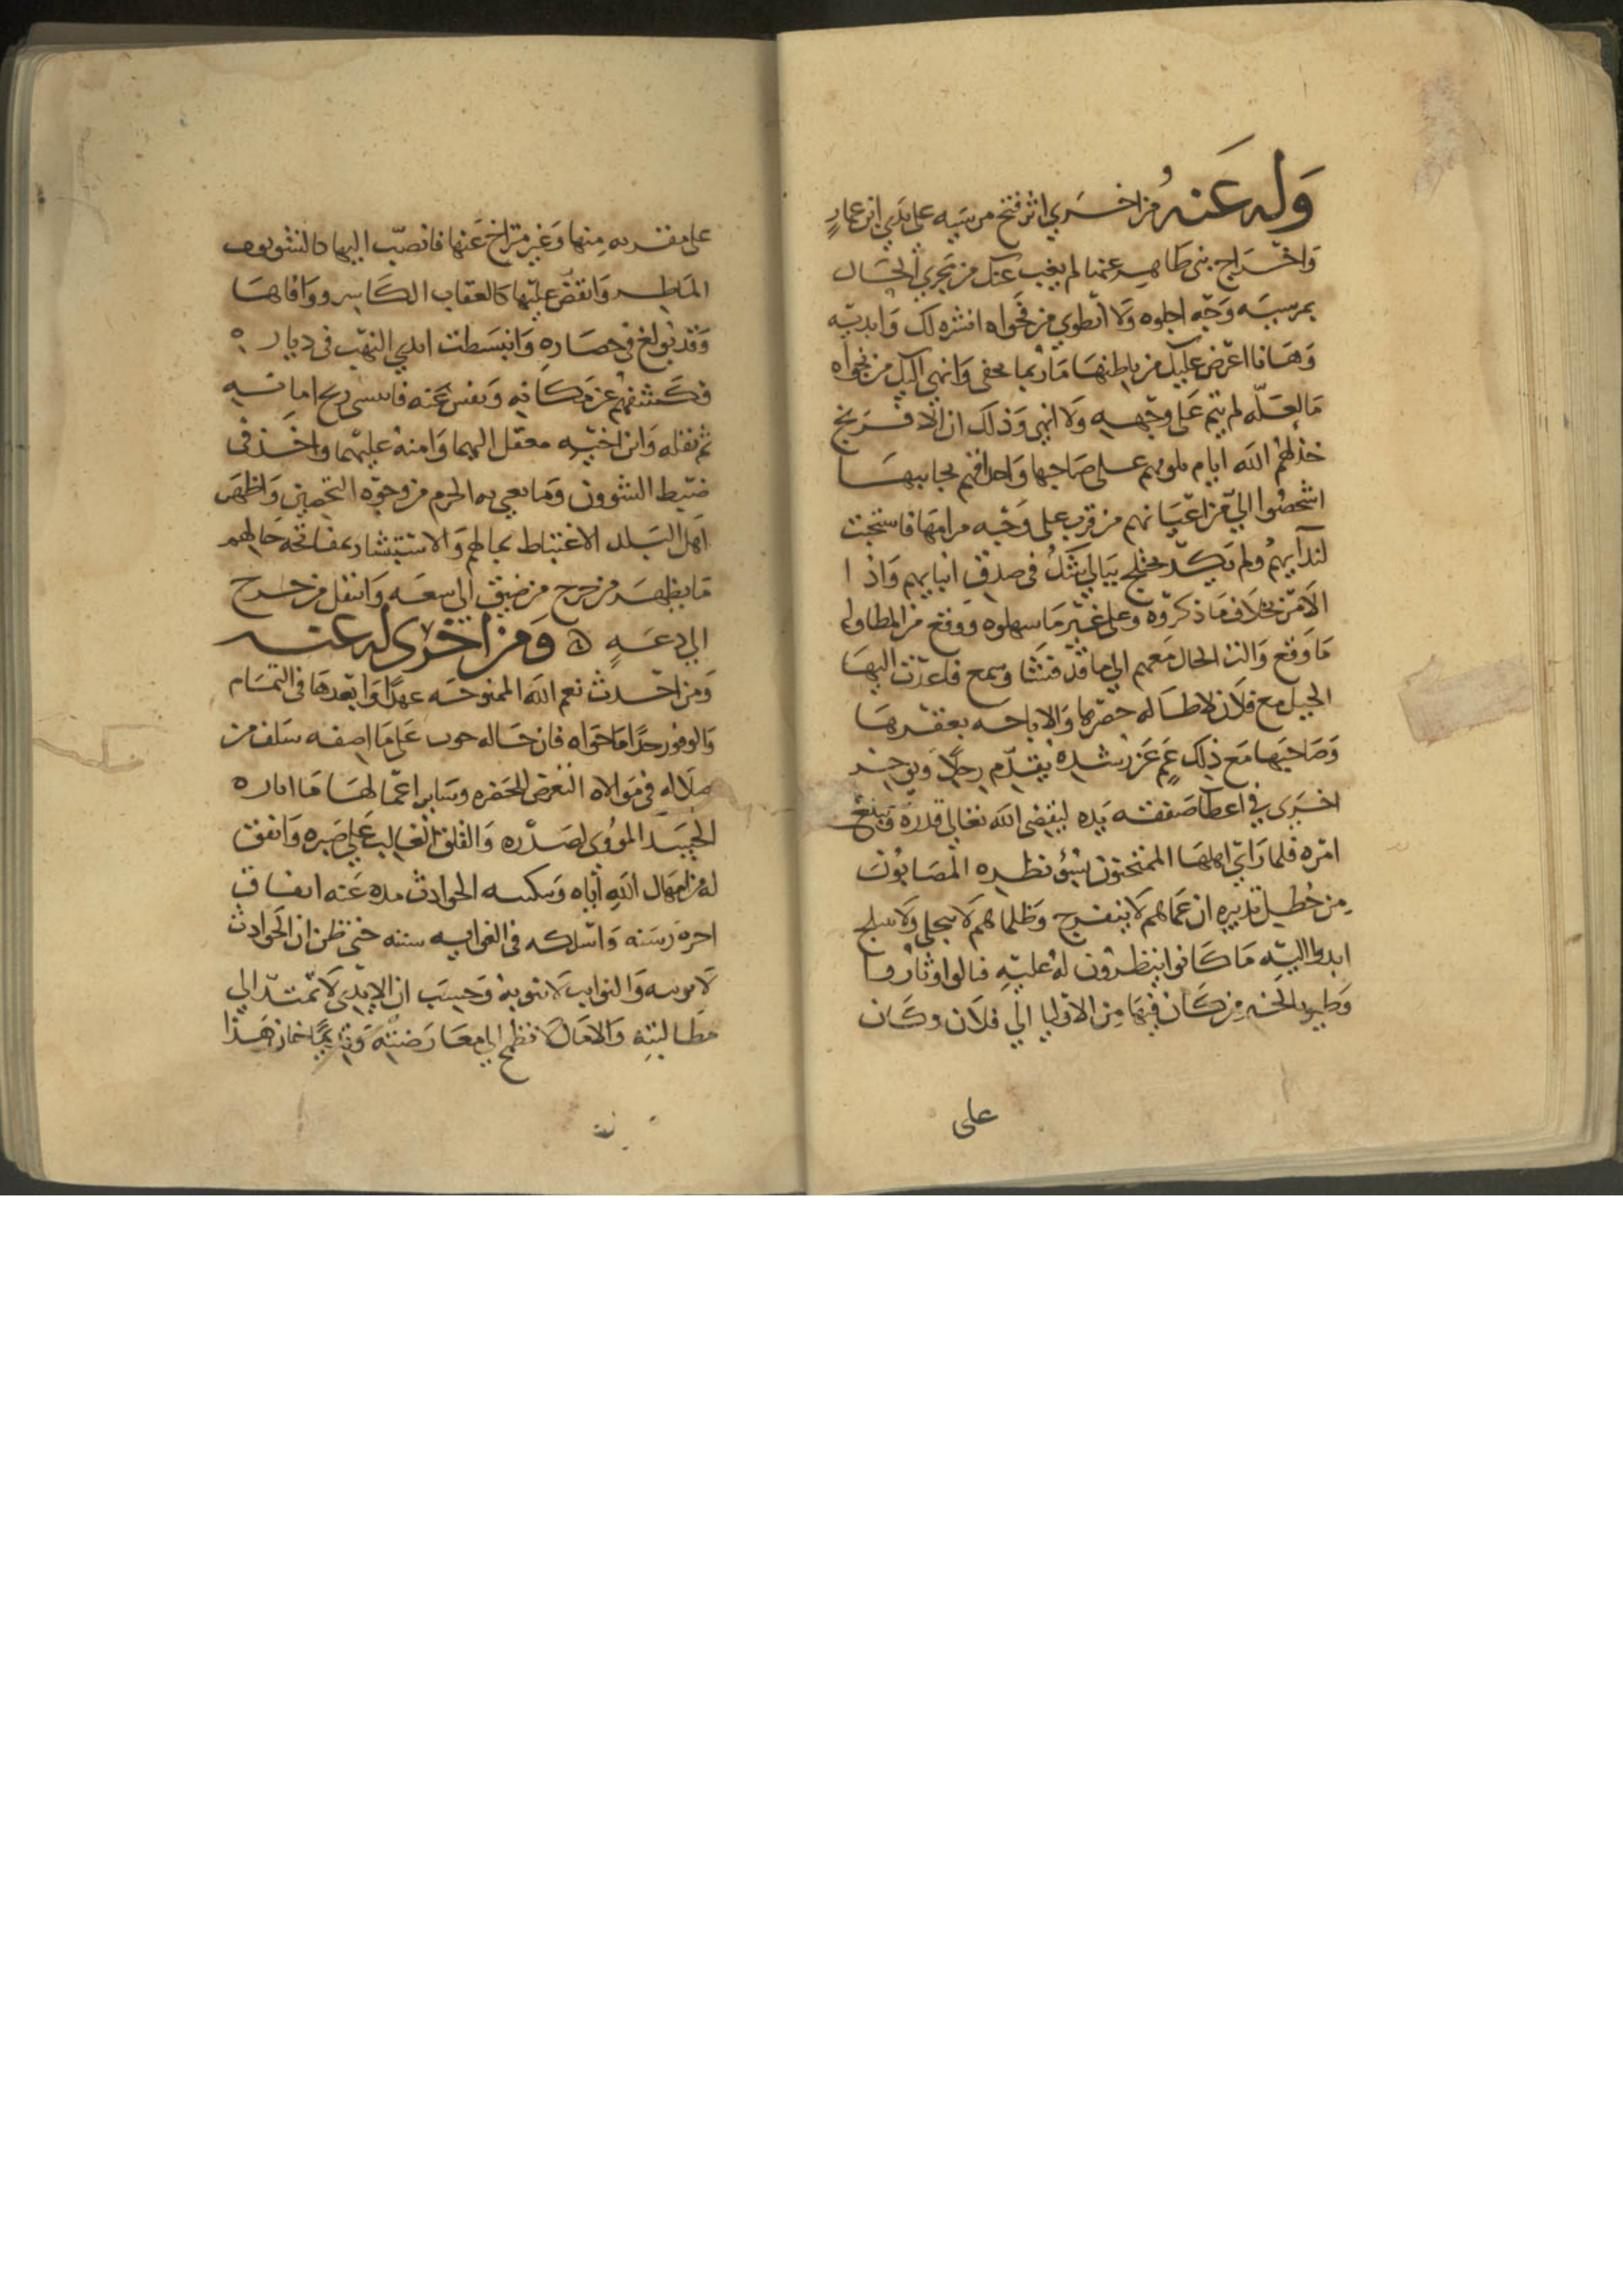 وله عنه من اخرى اثر فتح مرسيه على يدي ابن عمار
واخراج بنى طاهر عنها لم يغب عنك من مجرى الحال
بمرسيه وجه اجلوه ولا انطوى من فحواه انشره لك وابديه
وها انا اعرض عليك من باطنها ما ربما يخفى وانهي اليك من نجواه
ما لعله لم يتم على وجهه ولا انهي وذلك ان الافرنج
خذلهم الله ايام علي صاحبها بجانبها
اشخصوا الي من اعيانهم من قرب على وجه مرامها فاستجبت
لندايهم ولم يكد يختلج ببالي شك في صدق انبايهم واذا
الامر بخلاف ما ذكروه وعلى غير ما سهلوه ووقع من المطاولة
ما وقع والت الحال معهم الي ما قد فشا وسمع فاعدت اليها
الخيل مع فلان لاطاله حصرها والاناخه بعقرها
وصاحبها مع ذلك عم عن رشده يقدم رجلا ويوخر
اخرى في اعطا صفقه يده ليقضى الله تعالى قدره وينفذ
امره فلما راى اهلها الممتحنون بسؤ نظره المصابون
من خطل تدبيره ان غماهم لا ينفرج وظلماهم لا ينجلي ولا ينبلج
ابدوا اليه ما كانوا ينطوون له عليه فمالوا وثاروا
وطير بالخبر من كان فيها من الاوليا الي فلان وكان
على
على مقربه منها وغير متراخ عنها فانصب اليها كالشوبوب
الماطر وانقض عليها كالعقاب الكاسر ووافاها
وقد بولغ في حصاره وانبسطت ايدي النهب في دياره
فكشفهم عن مكانه ونفس عنه
ثم نقله وابن اخيه معقل وامنه عليهما واخذ في
ضبط الشوون وما يعبي به الحزم من وجوه التحصين واظهر
اهل البلد الاغتباط بمالهم والاستبشار حالهم
ما يظهر من خرج من ضيق الي سعه وانتقل من حرج
الي دعه ومن اخرى له عنه
ومن احدث نعم الله الممنوحه عهدا وابعدها في التمام
والوفور حدا ما حواه فلان حاله على ما اصفه سلف من
ضلاله في موالاه التعرض للحضره وساير اعمالها ما اثاره
الحسد الموذي لصدره والقلق الغالب على صبره واتفق
له من امهال الله اياه الحوادث مده عنه
اجره رسنه واسلكه في الغوايه سننه حتى ظن ان الحوادث
لا تريبه والنوايب لا تنوبه وحسب ان الايدى لا تمتد الي
مطالبته والامال لا تطمح الي معارضته هذا